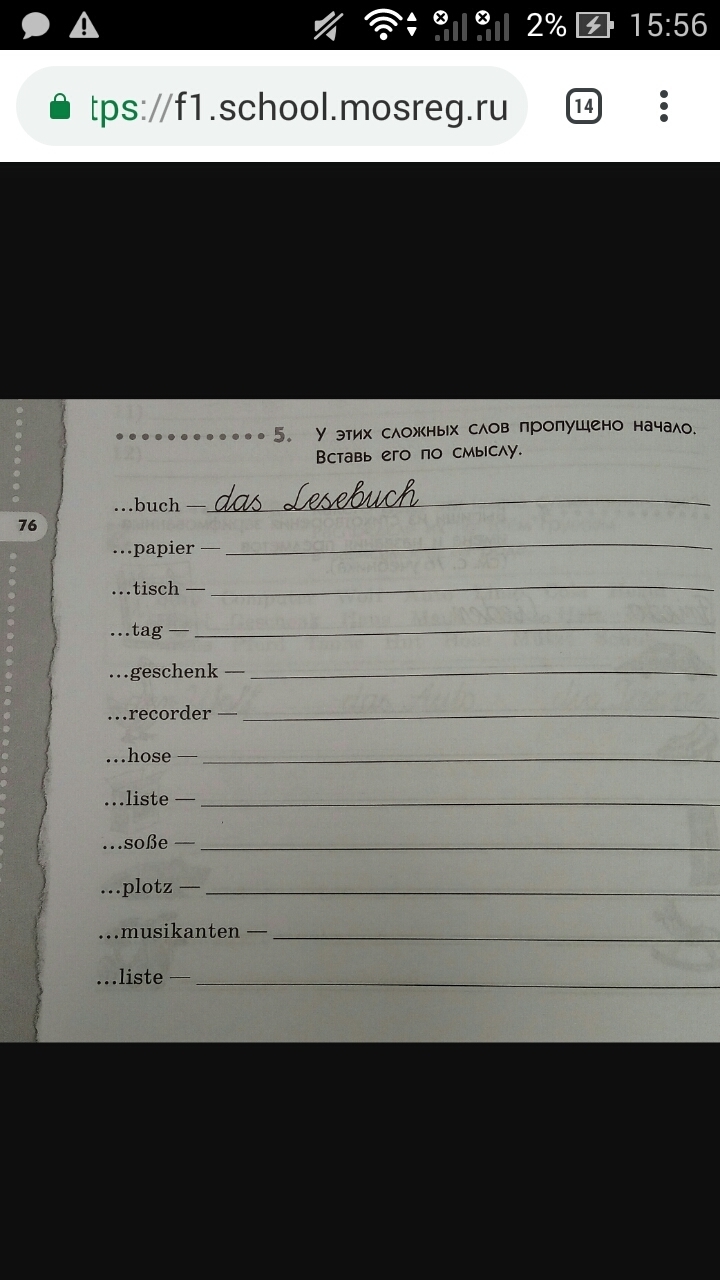 2% 15:56
tps://f1.school.mosreg.ru 14
5. У этих сложных слов пропущено начало.
Вставь его по смыслу.
...buch — das Lesebuch
76
...papier —
...tisch —
...tag —
...geschenk —
...recorder —
...hose —
...liste —
...soße —
...plotz —
...musikanten —
...liste —